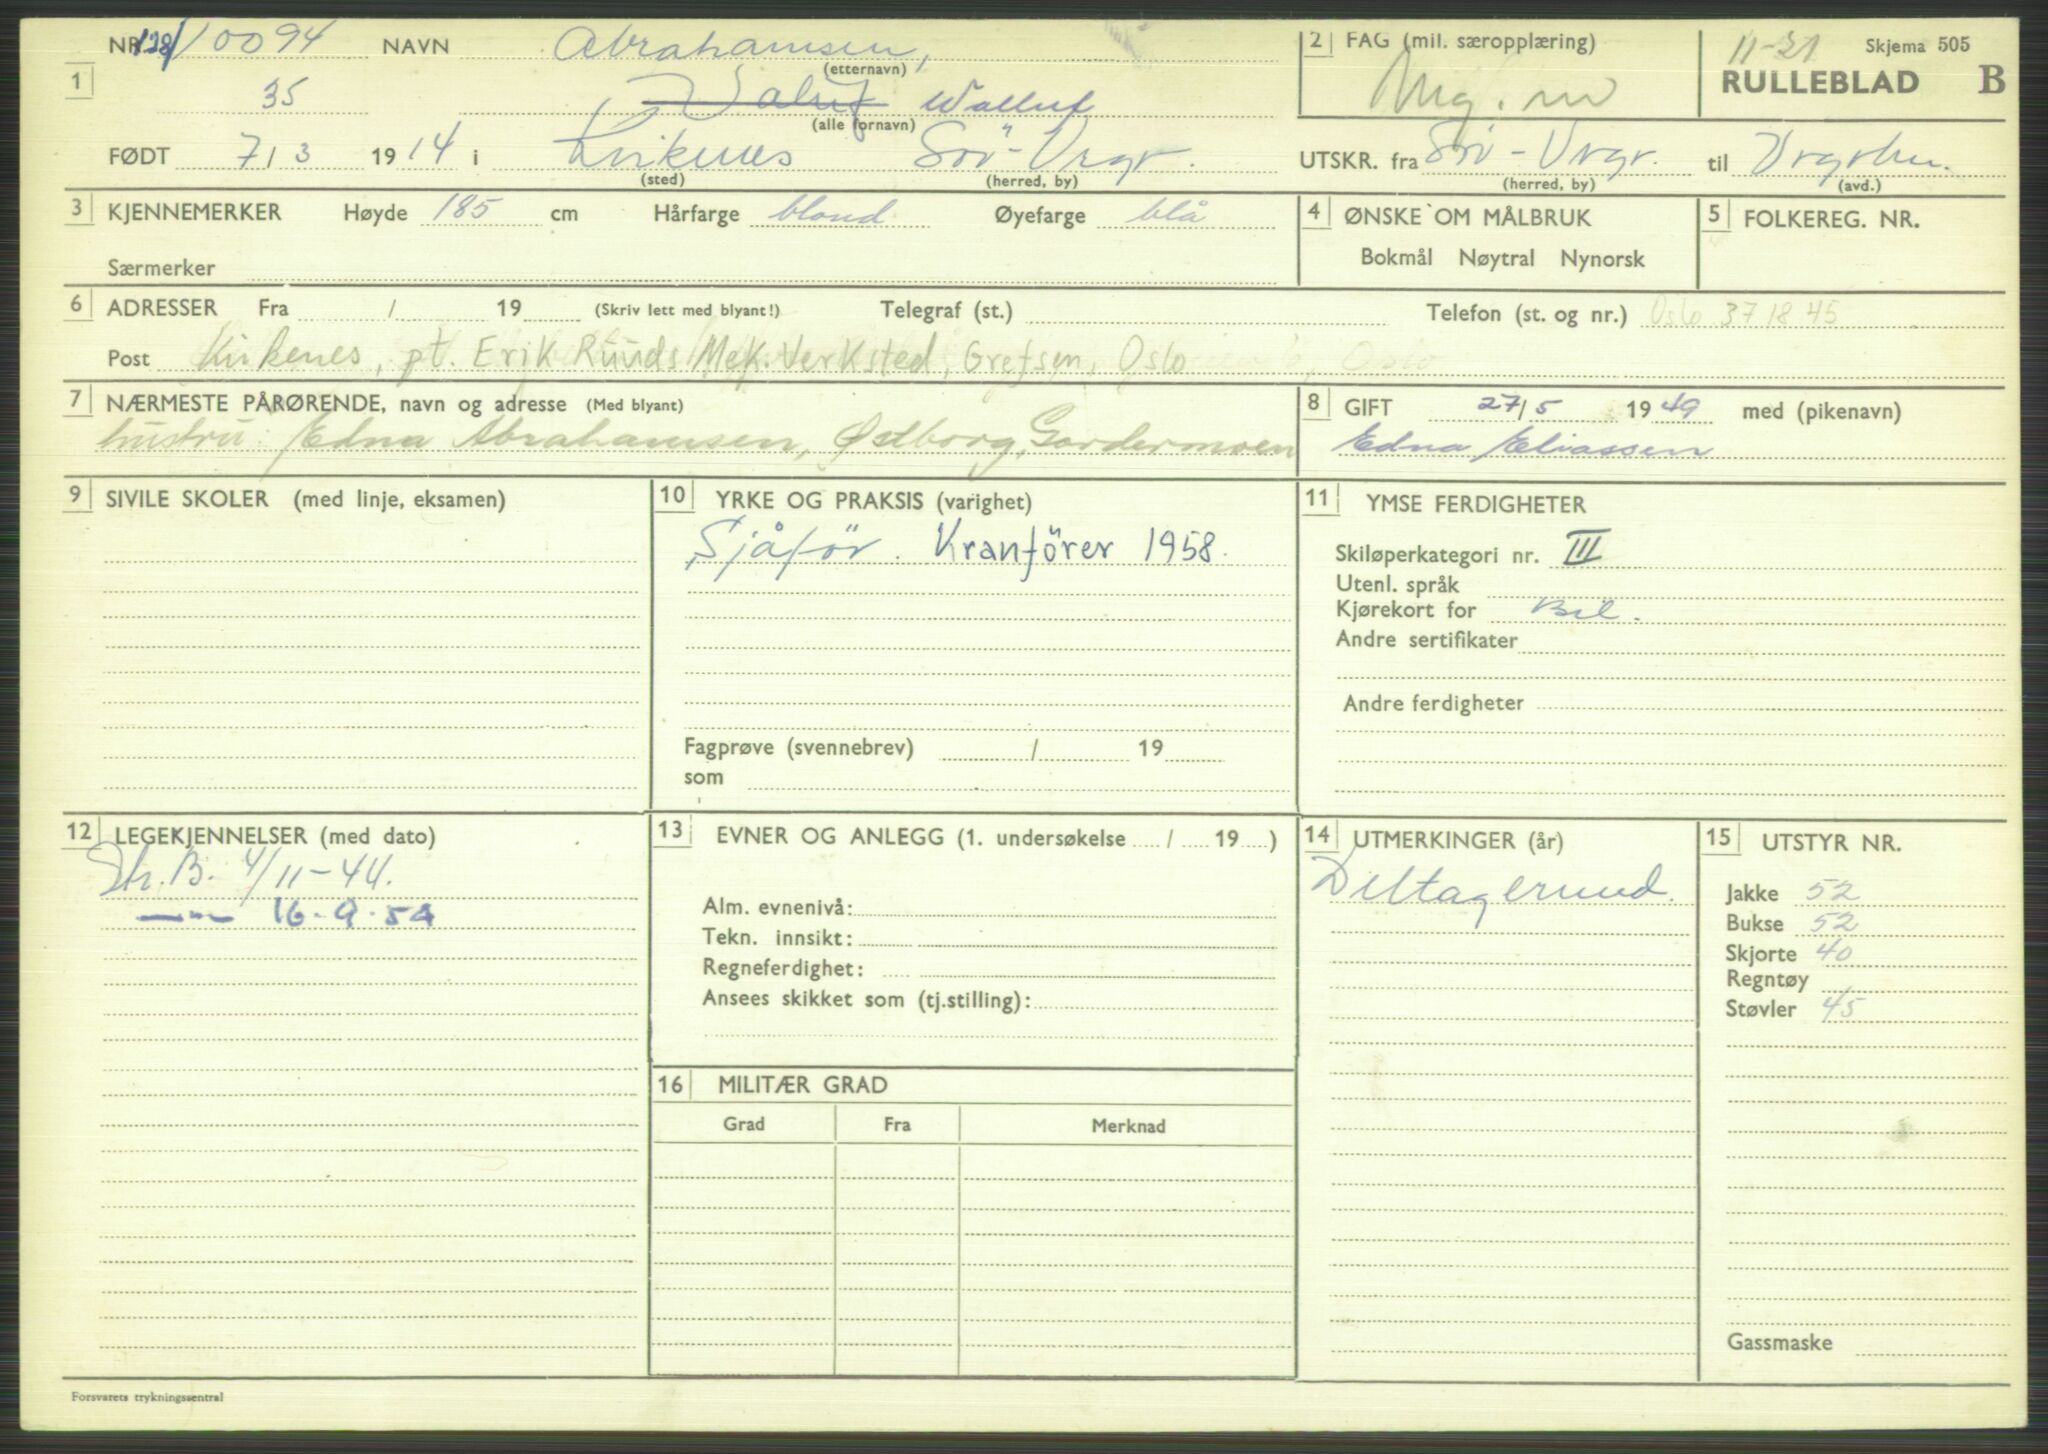 NR 128/10094 NAVN Abrahamsen, 2 FAG (mil. særopplæring) 11-21 Skjema 505
(etternavn)
1 35 Waluf Walluf Mg. m RULLEBLAD B
(alle fornavn)
FØDT 7/3 1914 i Kirkenes Sör-Vrgr. UTSKR. fra Sör-Vrgr. til Vrgrhn.
(sted) (herred, by) (herred, by) (avd.)
3 KJENNEMERKER Høyde 185 cm Hårfarge blond Øyefarge blå 4 ØNSKE OM MÅLBRUK 5 FOLKEREG. NR.
Bokmål Nøytral Nynorsk
Særmerker
6 ADRESSER Fra / 19 (Skriv lett med blyant!) Telegraf (st.) Telefon (st. og nr.) Oslo 37 18 45
Post Kirkenes, pt. Erik Ruuds Mek. Verksted, Grefsen, Oslo , Oslo
7 NÆRMESTE PÅRØRENDE, navn og adresse (Med blyant) 8 GIFT 27/5 1949 med (pikenavn)
hustru: Edna Abrahamsen, Østborg, Gardermoen Edna Eliassen
9 SIVILE SKOLER (med linje, eksamen) 10 YRKE OG PRAKSIS (varighet) 11 YMSE FERDIGHETER
Sjåför. Kranförer 1958. Skiløperkategori nr. III
Utenl. språk
Kjørekort for Bil.
Andre sertifikater
Andre ferdigheter
Fagprøve (svennebrev) / 19
som
12 LEGEKJENNELSER (med dato) 13 EVNER OG ANLEGG (1. undersøkelse / 19 ) 14 UTMERKINGER (år) 15 UTSTYR NR.
Str. B. 4/11-44. Deltagermed. Jakke 52
—"— 16.9.54 Alm. evnenivå: Bukse 52
Tekn. innsikt: Skjorte 40
Regneferdighet: Regntøy
Ansees skikket som (tj.stilling): Støvler 45
16 MILITÆR GRAD
Grad Fra Merknad
Gassmaske
Forsvarets trykningssentral